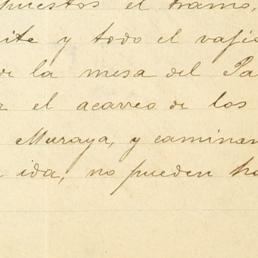 puestos el tramo,
ite y todo el
de la mesa del Pa
el acarreo de los
Muraya, y caminan
ida, no pueden ha